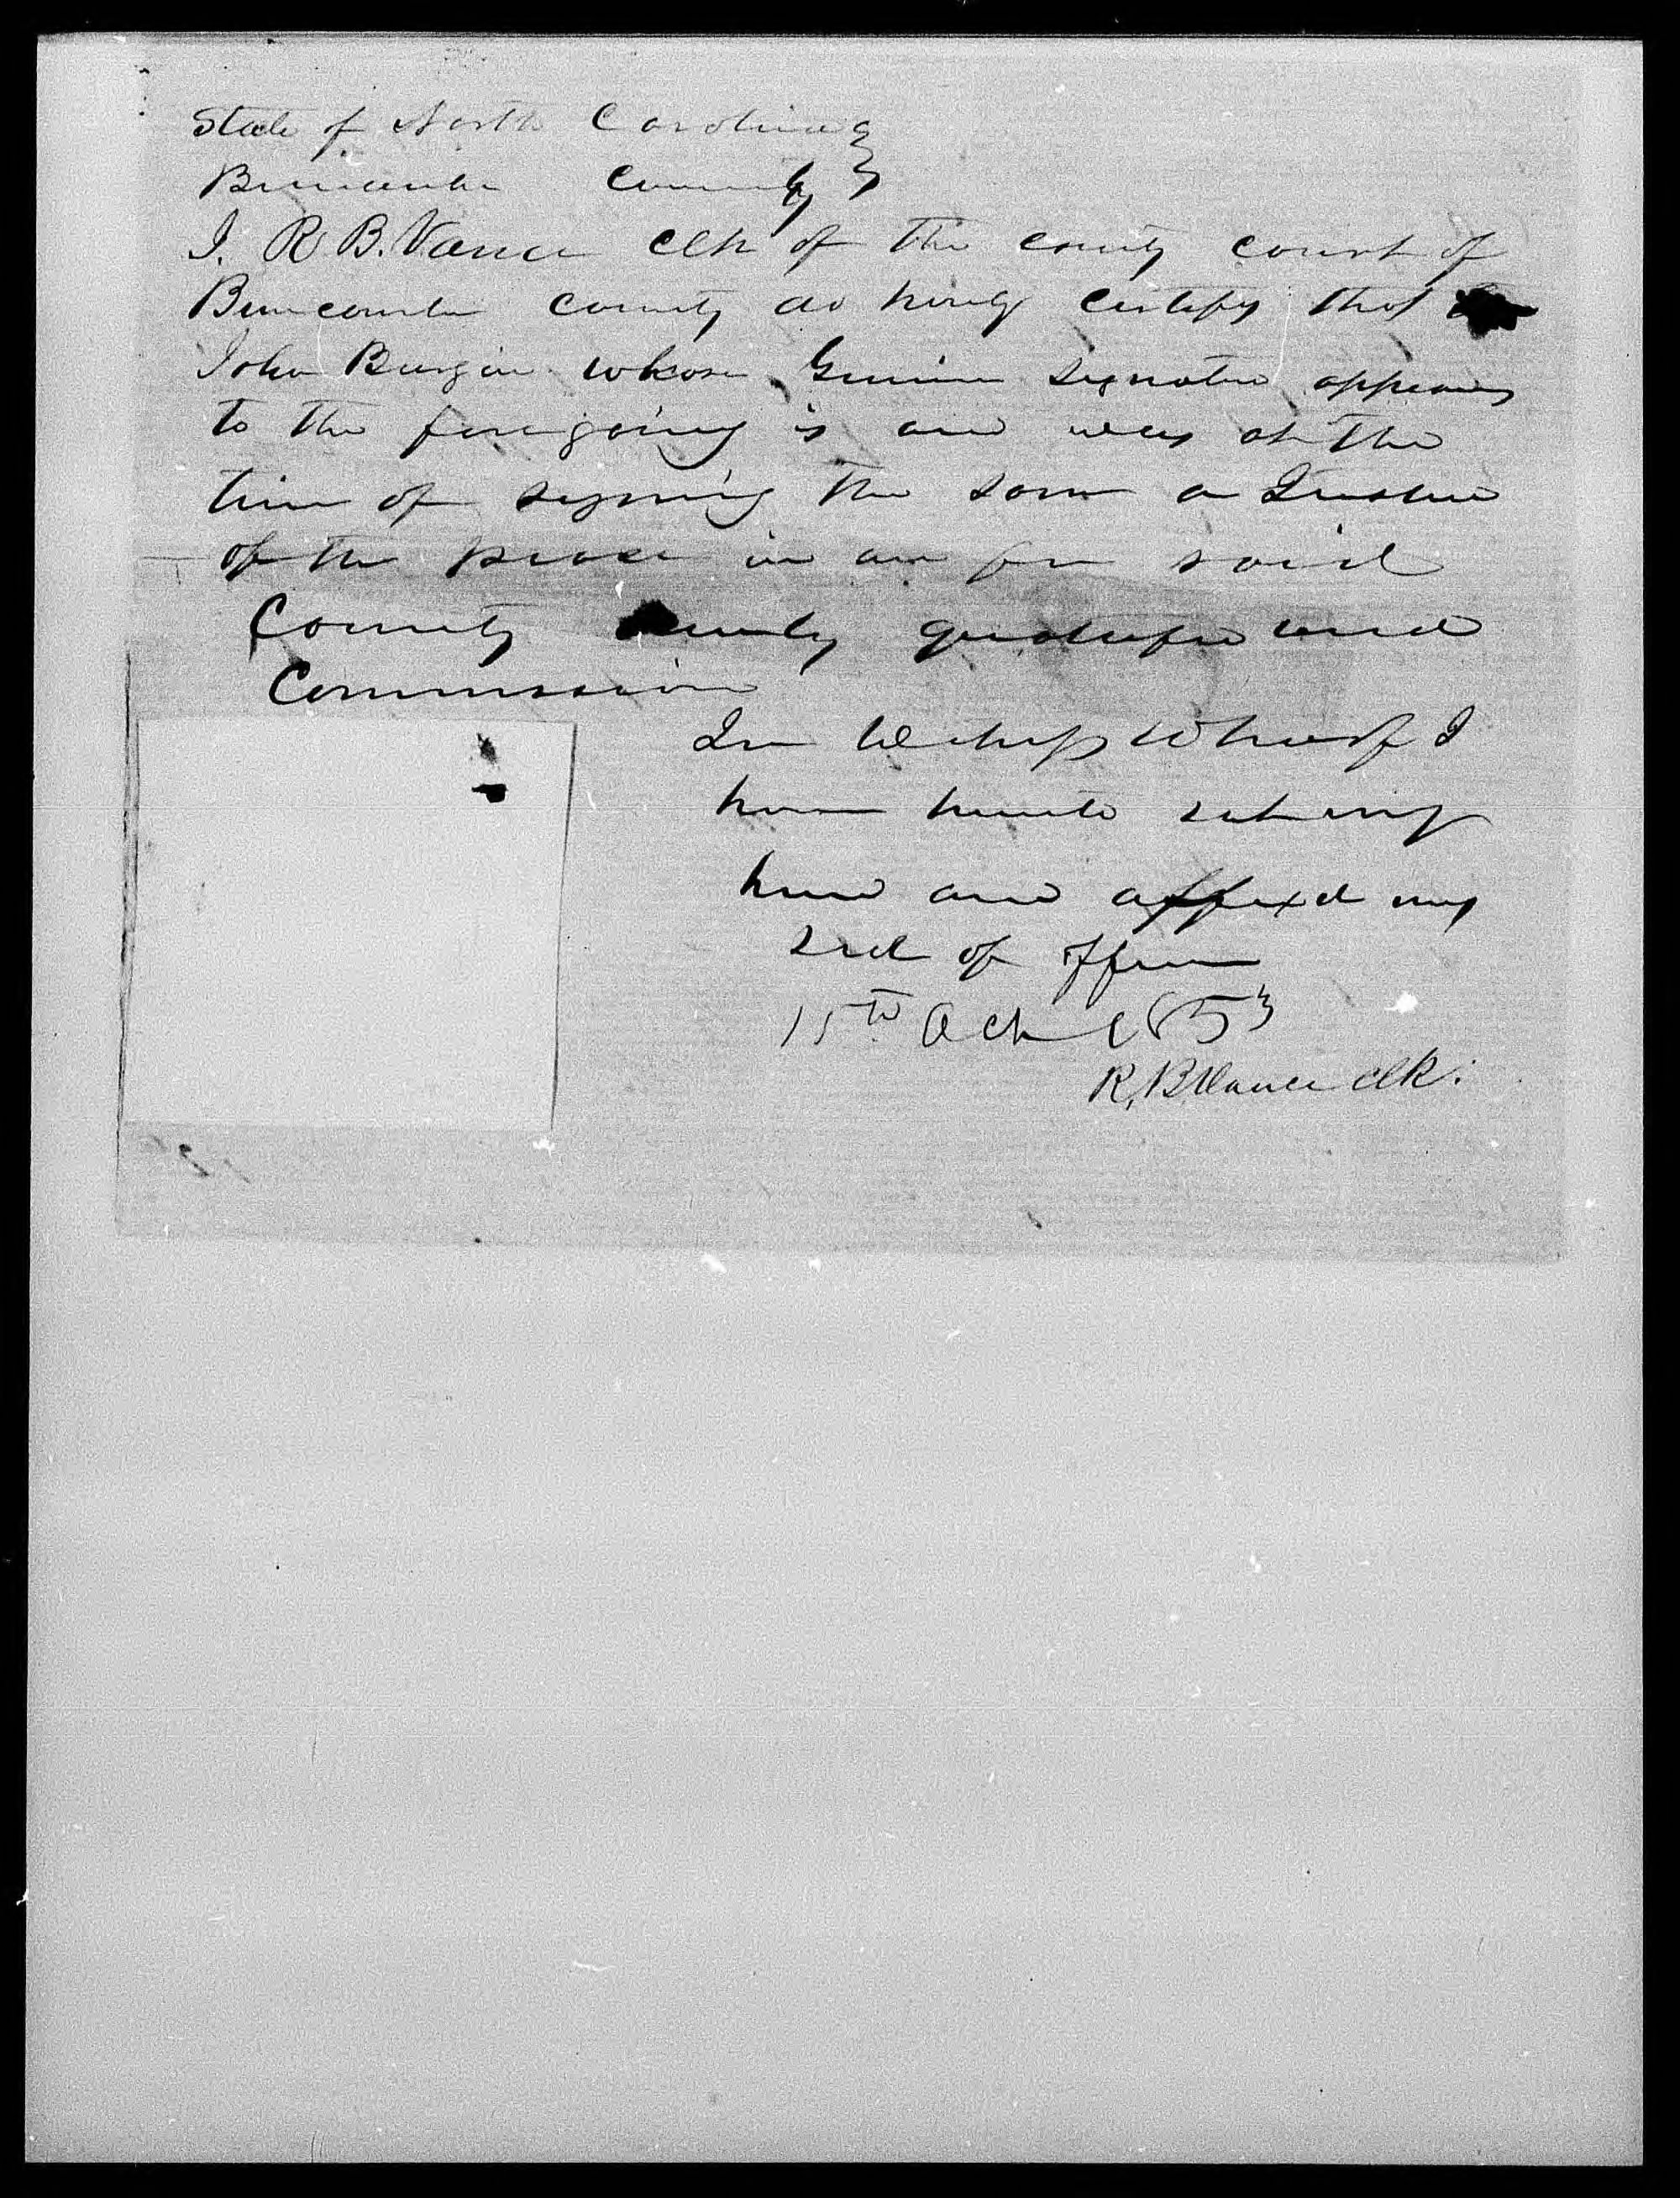 State of North Carolina
Buncombe County
I. R. B. Vance Clk of the county court of
Buncombe county do hereby certify that
John Burgin whose Genuine signature appears
to the foregoing is and was at the
time of signing the same a Justice
of the peace in and for said
County duly qualified and
Commission
In Witness Whereof I
have hereunto set my
hand and affixed my
seal of office
15th Oct 1853
R. B. Vance clk.